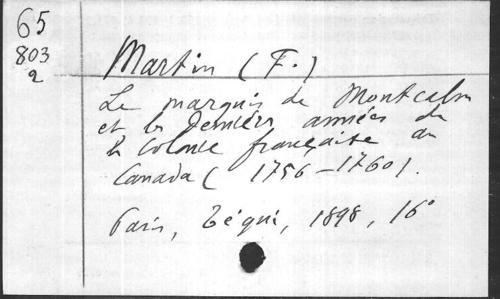 65
803
2
Martin (F.)
Le marquis de Montcalm
et les dernières années de
la Colonie française au
Canada (1756-1760).
Paris, Téqui, 1898, 16°